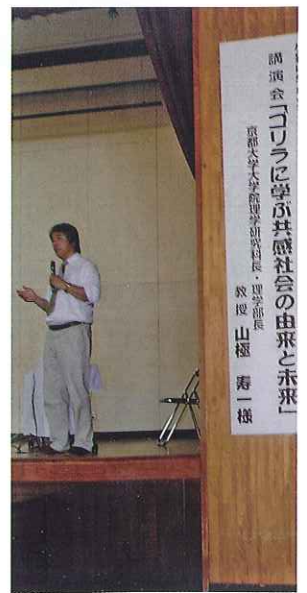 講演会「ゴリラに学ぶ共感社会の由来と未来」
京都大学大学院理学研究科長・理学部長
教授 山極 寿一様